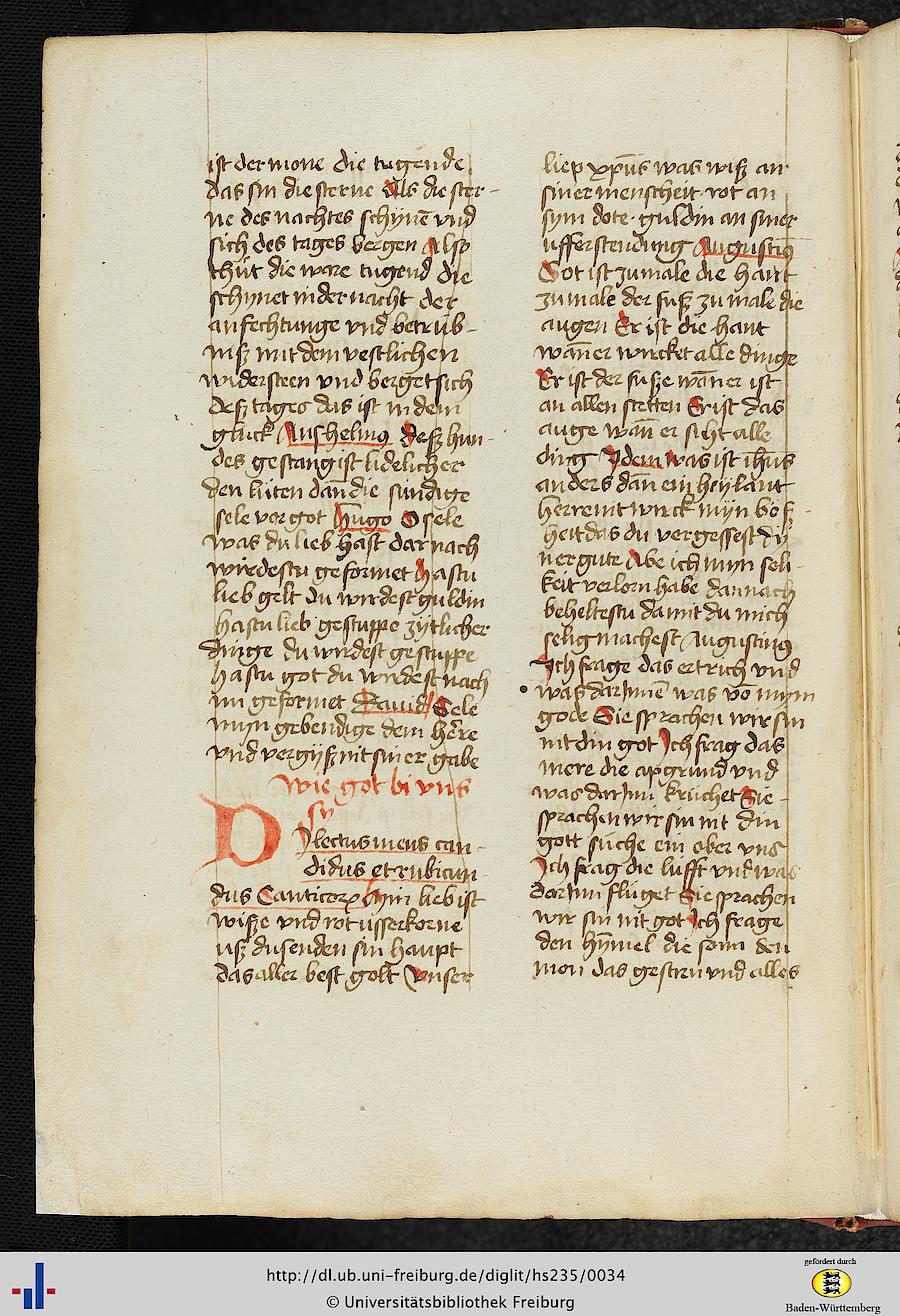 ist der mone die tugende
das sin die sterne Als die ster-
ne des nachtes schynē vnd
sich des tages bergen Also
thůt die ware tugend die
schynet in der nacht der
anfechtunge vnd betrůb-
nisz mit dem vestlichen
widersteen vnd berget sich
desz tages das ist in dem
gluck Anshelmus desz hun-
des gestang ist lidelicher
den lůten dan die sundige
sele vor got Hugo O sele
was du lieb hast dar nach
wirdestu geformet Hastu
lieb gelt du wirdest guldin
hastu lieb gestuppe zytlicher
dinge du wirdest gestuppe
hastu got du wirdest nach
im geformet Dauid Sele
myn gebendige dem herre
vnd vergisz nit siner gabe
wie got bi vns
sy
Dylectus meus can-
didus et rubicun-
dus Canticorum Myn lieb ist
wisze vnd rot usserkorne
usz dusenden sin haupt
das aller best golt Vnser
liep xpūs was wisz an
siner menscheit rot an
sym dote guldin an siner
ufferstendung Augustinus
Got ist zumale die hant
zumale der fusz zu male die
augen Er ist die hant
wan er wircket alle dinge
Er ist der fusze wan er ist
an allen stetten Er ist das
auge wan er siht alle
ding Idem Was ist ihūs
anders dan ein heylant
herre nit wirck myn bosz-
heit das du vergessest dy
ner gute Abe ich myn seli-
keit verlorn habe dannach
beheltestu da mit du mich
selig machest Augustinus
Ich frage das ertrich vnd
was dar inne was vo mym
gode Sie sprachen wir sin
nit din got Ich frag das
mere die apgrund vnd
was dar inn kruchet Sie
sprachen wir sin nit din
gott suche ein ober vns
Ich frag die lufft vnd was
dar inn fluget Sie sprachen
wir sin nit got Ich frage
den hymel die sonn den
mon das gestirn vnd alles
http://dl.ub.uni-freiburg.de/diglit/hs235/0034
© Universitätsbibliothek Freiburg
gefördert durch
Baden-Württemberg